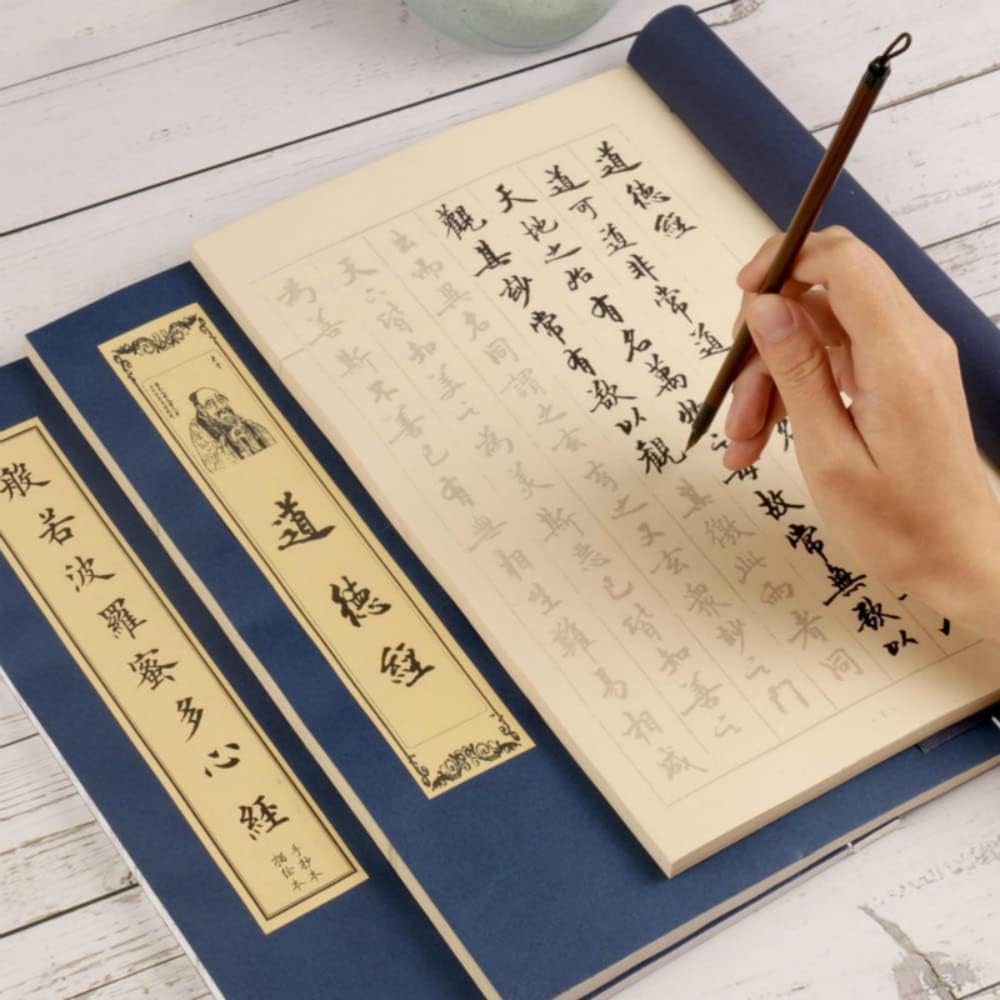 道德經
道可道非常道
天地之始有名萬物之母故常無欲以
觀其妙常有欲以觀其徼此兩者同
出而異名同謂之玄玄之又玄衆妙之門
天下皆知美之為美斯惡已皆知善之
為善斯不善已有無相生難易相成
道德經
般若波羅蜜多心經
手抄本
描绘本